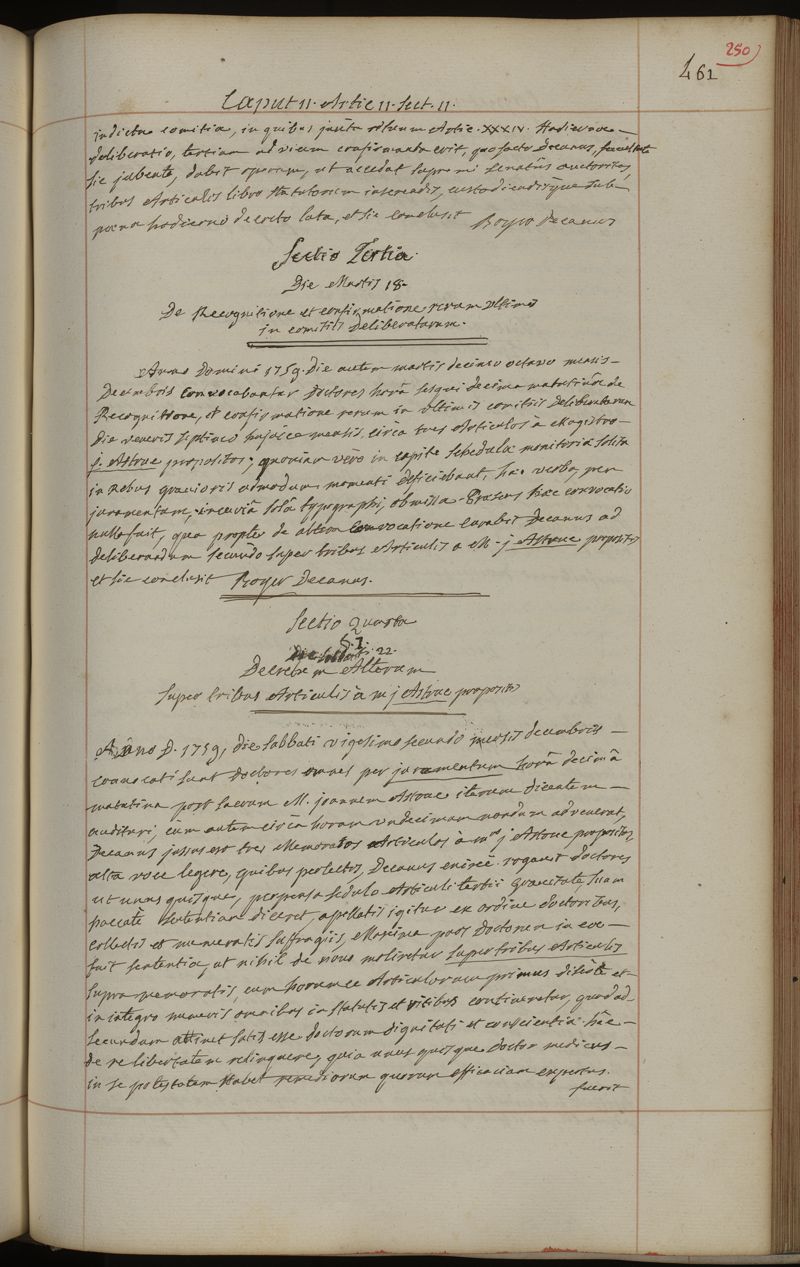 250
461
Caput 11. Artic 11. Sect. 11.
indictae comitia, in quibus juxta ritum Artic. XXXIV. Hodierna
deliberatio, tertium ad vicem confirmanda erit, quo facto Decanus, facultate
sic jubente, dabit operam, ut accedat supremi senatûs auctoritas,
tribus Articulis libro statutorum inserendis, custodiendisque sub
poena hodierno decreto lata, et sic conclusit Boyer Decanus
Sectio Tertia.
Die Martis 18.
De Recognitione et confirmatione rerum ultimis
in comitiis Deliberatarum.
Anno Domini 1759. Die autem martis decimo octavo mensis
Decembris convocabantur Doctores horâ sesqui decima matutinâ de
Recognitione, et confirmatione rerum in ultimis comitiis deliberatarum
die veneris septimo hujusce mensis, circa tres Articulos à Magistro
j. Astruc propositos; quoniam vero in capite schedulae monitoriae solita
in Rebus gravioris admodum momenti deficiebant, haec verba, per
juramentum, incuriâ solâ typographi, obmissa Prorsus haec convocatio
nulla fuit, qua propter de altera convocatione curabit Decanus ad
deliberandum secundo super tribus Articulis a M. j Astruc propositis
et sic conclusit Boyer Decanus.
Sectio Quarta
§. 1.
22.
Decretum Alterum
super tribus Articulis à m j Astruc propositis
Anno D. 1759, die sabbati vigesimo secundo mensis decembris
convocati sunt Doctores omnes per juramentum horâ decimâ
matutina post sacrum M. joannem Astruc iterum dicentem
audituri, cùm autem circa horam undecimam nondum advenerat,
Decanus jussus est tres Memoratos Articulos à mro j Astruc propositos,
alta voce legere, quibus perlectis, Decanus enixè rogavit doctores
ut unus quisque, perpensa sedulo Articuli tertii gravitate, suam
pacatè sententiam diceret, apellatis igitur ex ordine doctoribus,
collectis et numeratis suffragiis, Maxima pars Doctorum in eo
fuit sententia, ut nihil de novo moliretur super tribus Articulis
supra memoratis, cum horumce Articulorum primus dilucidè et
in integro numeris omnibus in statutis et ritibus contineretur, quod ad
secundum attinet satis esse doctorum dignitati et conscientiae hâc
de re libertatem relinquere, quia unus quisque doctor medicus
in se potestatem Habet remediorum quorum efficaciam expertus.
fuerit